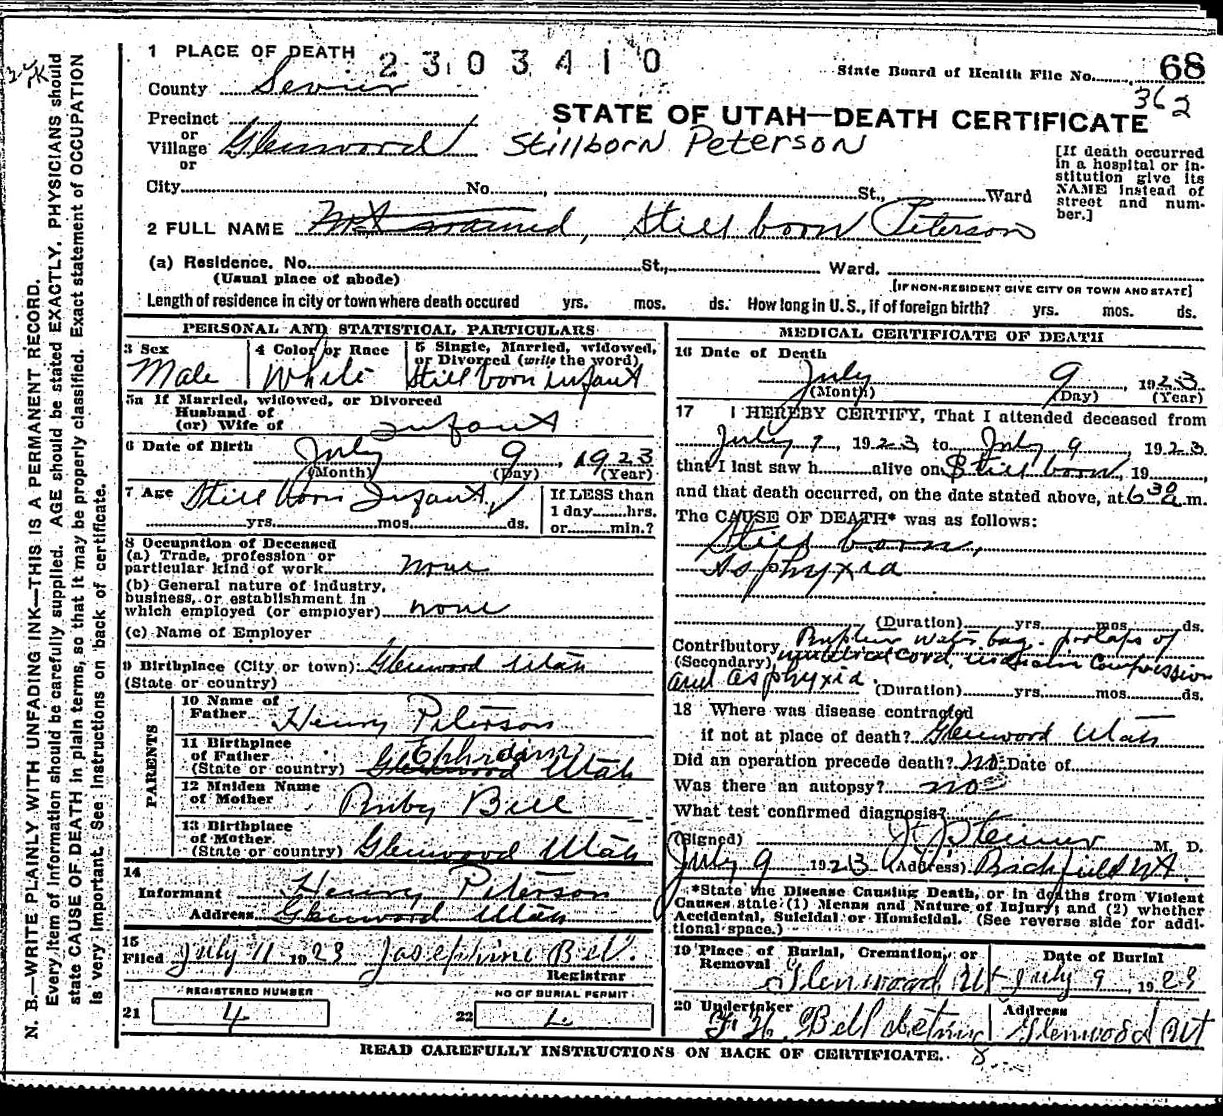 1 PLACE OF DEATH 2303410
State Board of Health File No. 68
362
County Sevier
STATE OF UTAH—DEATH CERTIFICATE
Precinct
or
Village Glenwood
or
Stillborn Peterson
[If death occurred in a hospital or institution give its NAME instead of street and number.]
City No. St., Ward
2 FULL NAME Not named, Still born Peterson
(a) Residence. No. St., Ward.
(Usual place of abode) [IF NON-RESIDENT GIVE CITY OR TOWN AND STATE]
Length of residence in city or town where death occured yrs. mos. ds. How long in U.S., if of foreign birth? yrs. mos. ds.
PERSONAL AND STATISTICAL PARTICULARS
3 Sex 4 Color or Race 5 Single, Married, widowed,
or Divorced (write the word)
Male White Still born infant
5a If Married, widowed, or Divorced
Husband of
(or) Wife of infant
6 Date of Birth July 9, 1923
(Month) (Day) (Year)
7 Age Still born Infant
If LESS than
1 day hrs.
yrs. mos. ds. or min.?
8 Occupation of Deceased
(a) Trade, profession or
particular kind of work none
(b) General nature of industry,
business, or establishment in
which employed (or employer) none
(c) Name of Employer
9 Birthplace (City or town) Glenwood Utah
(State or country)
PARENTS
10 Name of
Father Henry Peterson
11 Birthplace
of Father Ephraim
(State or country) Glenwood Utah
12 Maiden Name
of Mother Ruby Bell
13 Birthplace
of Mother
(State or country) Glenwood Utah
14
Informant Henry Peterson
Address Glenwood Utah
15
Filed July 11 1923 Josephine Bell.
Registrar
REGISTERED NUMBER NO OF BURIAL PERMIT
21 4 22 4
MEDICAL CERTIFICATE OF DEATH
16 Date of Death
July 9, 1923
(Month) (Day) (Year)
17 I HEREBY CERTIFY, That I attended deceased from
July 9, 1923, to July 9, 1923
that I last saw h alive on Still born, 19
and that death occurred, on the date stated above, at 6 30 a m.
The CAUSE OF DEATH* was as follows:
Still born,
Asphyxia
(Duration) yrs. mos. ds.
Contributory Rupture water bag. prolaps of
(Secondary) umbilical cord, compression
and asphyxia. (Duration) yrs. mos. ds.
18 Where was disease contracted
if not at place of death? Glenwood Utah
Did an operation precede death? no Date of
Was there an autopsy? no
What test confirmed diagnosis?
(Signed) Steiner M. D.
July 9 1923 (Address) Richfield Ut.
*State the Disease Causing Death, or in deaths from Violent
Causes state (1) Menas and Nature of Injury; and (2) whether
Accidental, Suicidal or Homicidal. (See reverse side for additional space.)
19 Place of Burial, Cremation, or
Removal Date of Burial
Glenwood Ut July 9, 1923
20 Undertaker Address
Bell Glenwood Ut
READ CAREFULLY INSTRUCTIONS ON BACK OF CERTIFICATE.
N. B.—WRITE PLAINLY WITH UNFADING INK—THIS IS A PERMANENT RECORD.
Every item of information should be carefully supplied. AGE should be stated EXACTLY. PHYSICIANS should
state CAUSE OF DEATH in plain terms, so that it may be properly classified. Exact statement of OCCUPATION
is very important. See instructions on back of certificate.